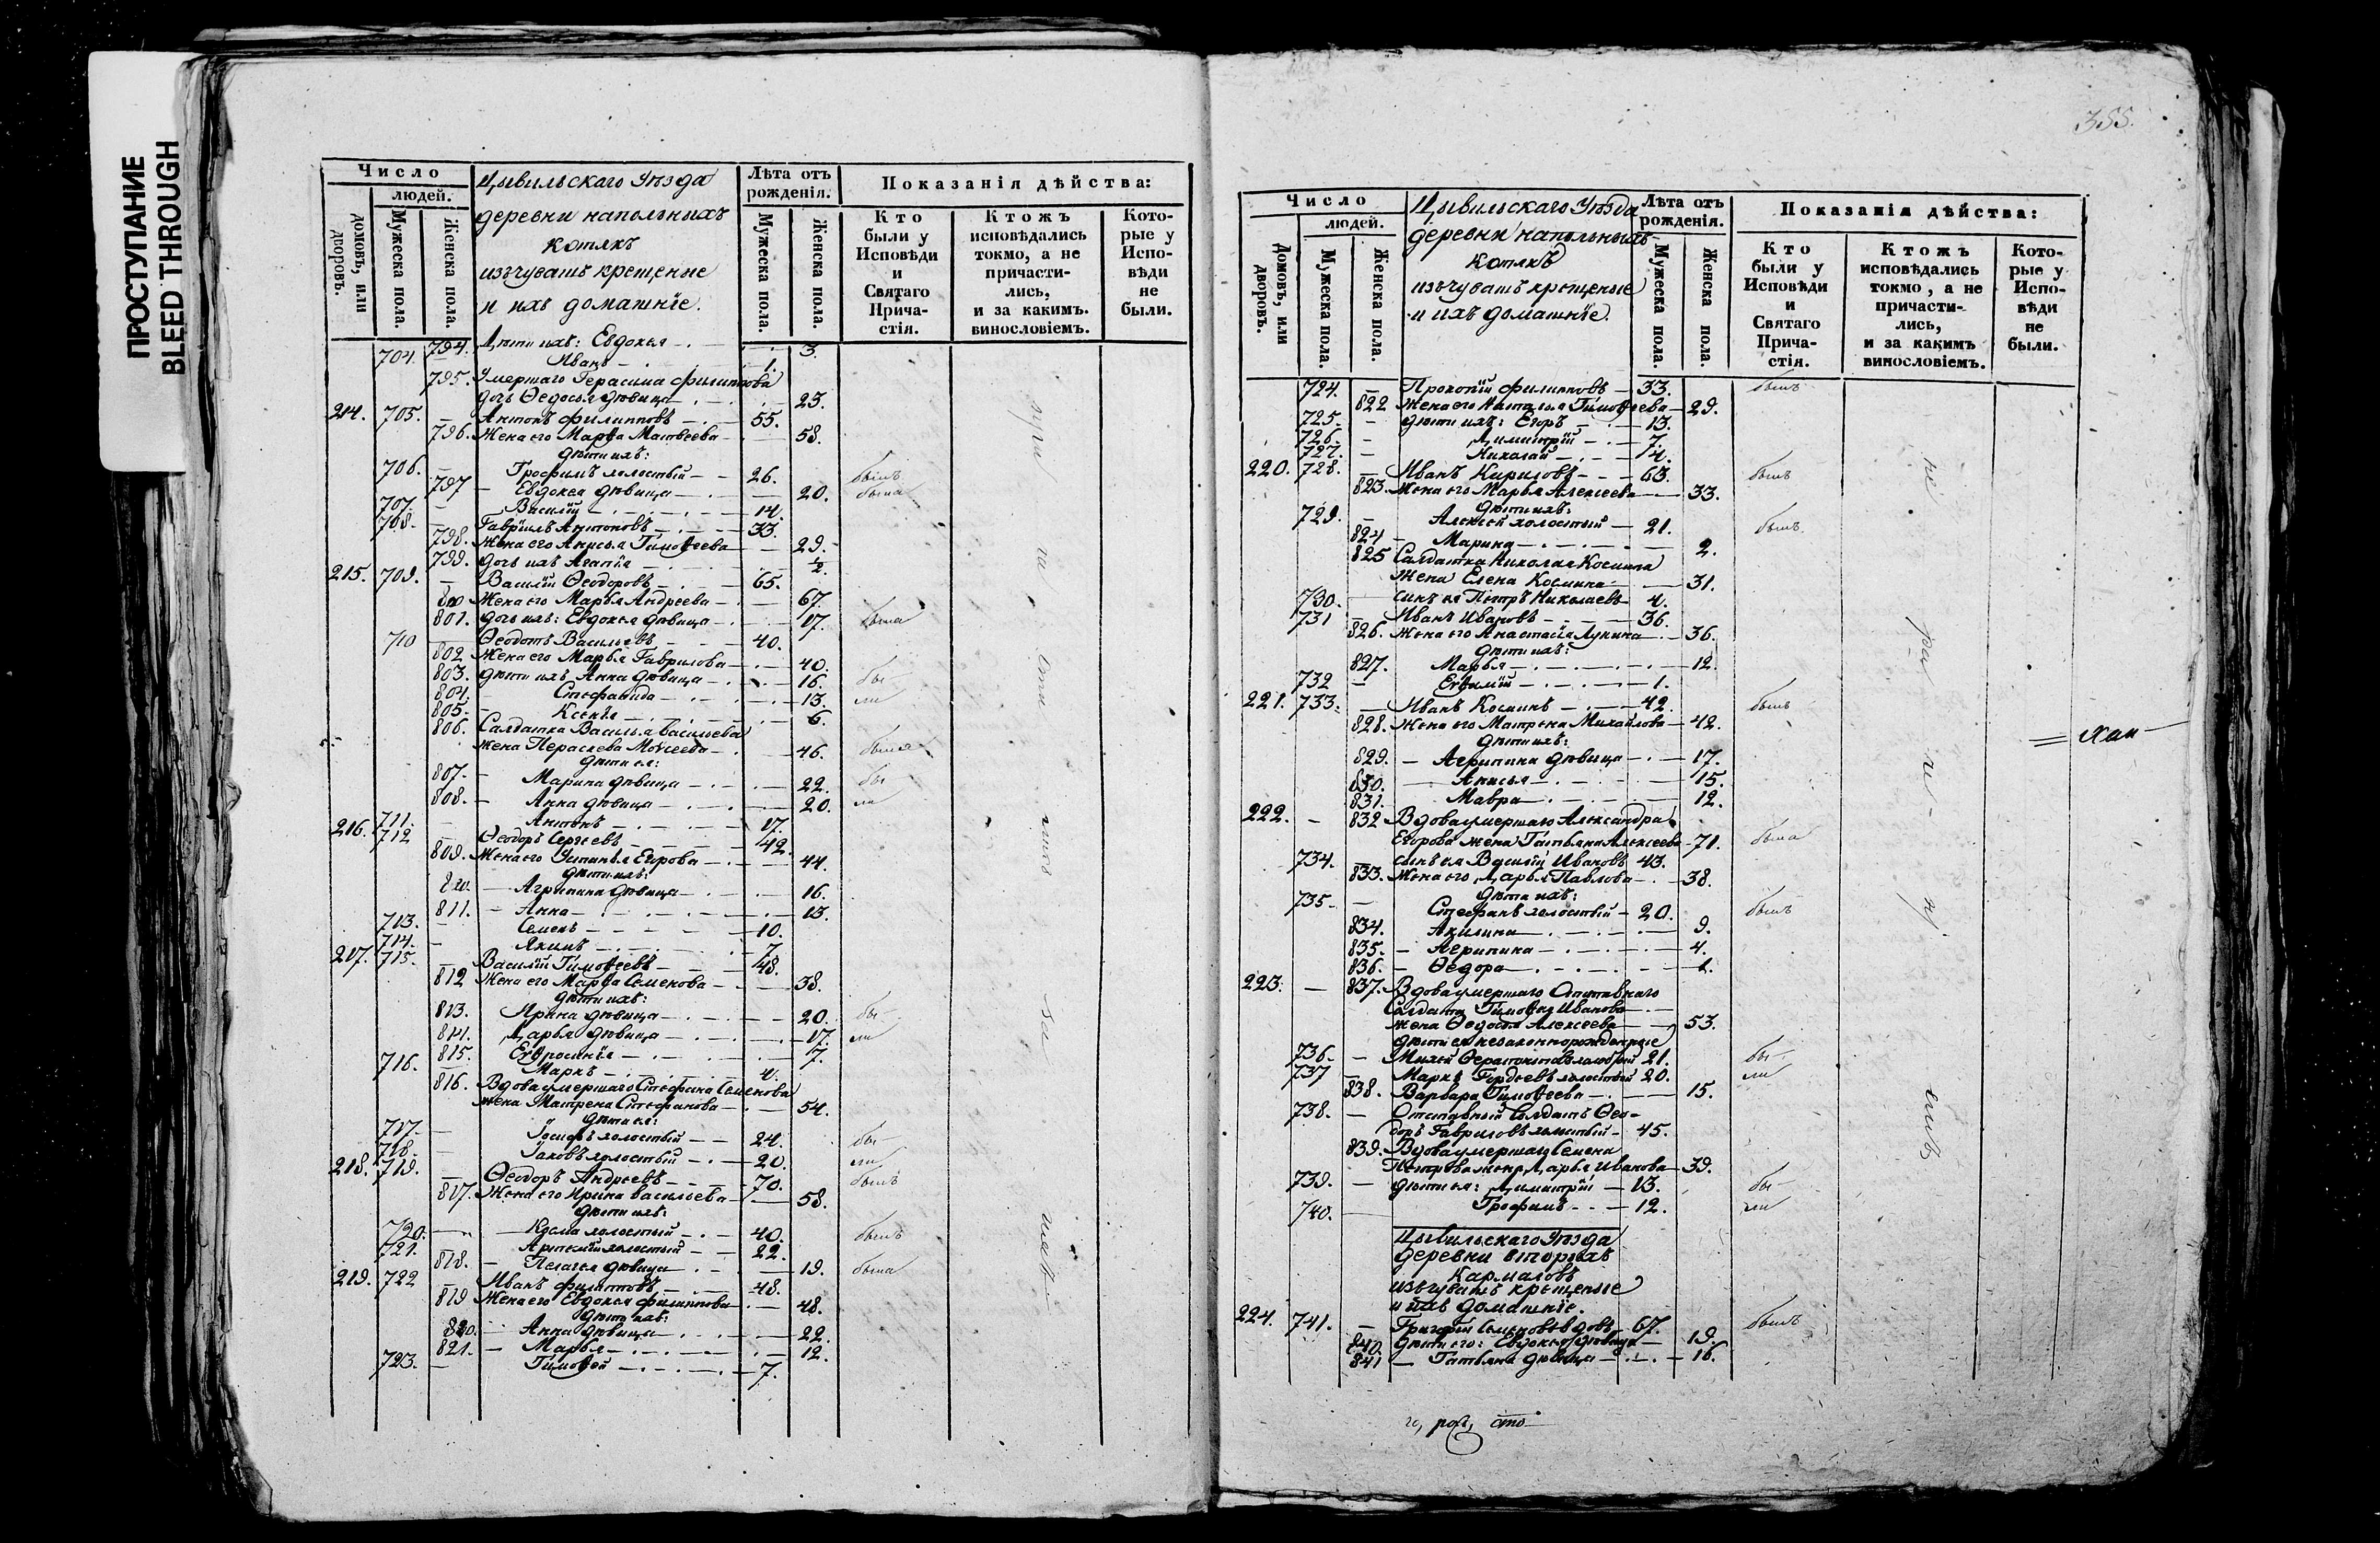 ПРОСТУПАНИЕ
BLEED THROUGH
Число
людей.
домовъ, или дворовъ.
Мужеска пола.
Женска пола.
Цывильскаго Уѣзда
деревни напольныхъ
Котякъ
изъ чувашъ крещеные
и ихъ домашніе.
Лѣта отъ рожденія.
Мужеска пола.
Женска пола.
Показанія дѣйства:
Кто были у Исповѣди и Святаго Причастія.
Ктожъ исповѣдались токмо, а не причастились, и за какимъ. винословіемъ.
Которые у Исповѣди не были.
794. Дѣти ихъ: Евдокья 3.
704. Иванъ 1.
795. Умершаго Герасима Филиппова
дочь Ѳедосья дѣвица 23.
214. 705. Антонъ Филипповъ 55.
796. Жена его Марѳа Матвѣева 58.
дѣти ихъ:
706. Трофимъ холостый 26. былъ
797 Евдокея дѣвица 20. была
707. Василій 14.
708. Гаврiилъ Антоновъ 33.
798. Жена его Анисья Тимоѳеева 29.
799. дочь ихъ Агапія ½.
215. 709. Василій Ѳеодоровъ 65.
800 Жена его Марья Андреева 67.
801. дочь ихъ: Евдокья дѣвица 17. была
710 Ѳеодотъ Васильевъ 40.
802 Жена его Марья Гаврилова 40.
803. дѣти ихъ Анна дѣвица 16. бы-
804. Стефанида 13. ли
805. Ксенія 6.
806. Салдатка Василья Васильева
жена Параскева Моѵсеева 46. была
дѣти ея:
807. Марина дѣвица 22. бы-
808. Анна дѣвица 20. ли
711. Антонъ 17.
216. 712 Ѳеодоръ Сергѣевъ 42.
809. Жена его Устинья Егорова 44.
дѣти ихъ:
810. Агрипина дѣвица 16.
811. Анна 13.
713. Семенъ 10.
714. Якимъ 7.
217. 715. Василій Тимоѳеевъ 48.
812 Жена его Марѳа Семенова 38.
дѣти ихъ:
813. Ирина дѣвица 20. бы-
814. Дарья дѣвица 17. ли
815. Евфросинія 7.
716. Маркъ 4.
816. Вдова умершаго Стефана Семенова
жена Матрена Стефанова 54.
дѣти ея:
717. Іосифъ холостый 24. бы-
718. Іаковъ холостый 20. ли
218. 719. Ѳеодоръ Андреевъ 70. былъ
817. Жена его Ирина Васильева 58.
дѣти ихъ:
720. Козма холостый 40. былъ
721. Артемій холостый 22.
818. Пелагея дѣвица 19. была
219. 722 Иванъ Филиповъ 48.
819 Жена его Евдокья Филиппова 48.
дѣти ихъ:
820. Анна дѣвица 22.
821. Марья 12.
723. Тимоѳей 7.
355.
Число
людей.
Домовъ, или дворовъ.
Мужеска пола.
Женска пола.
Цывильскаго Уѣзда
деревни напольныхъ
Котякъ
изъ чувашъ крещеные
и ихъ домашніе.
Лѣта отъ рожденія.
Мужеска пола.
Женска пола.
Показанія дѣйства:
Кто были у Исповѣди и Святаго Причастія.
Ктожъ исповѣдались токмо, а не причастились, и за какимъ винословіемъ.
Которые у Исповѣди не были.
724. Прокопій Филипповъ 33. былъ
822 Жена его Наталья Тимоѳеева 29.
725. дѣти ихъ: Егоръ 13.
726. Димитрій 7.
727. Николай 4.
220. 728. Иванъ Кириловъ 63. былъ
823. Жена его Марья Алексеева 33.
дѣти ихъ:
729. Алексей холостый 21. былъ
824 Марина 2.
825 Салдатка Николая Космина
жена Елена Космина 31.
730. сынъ ея Петръ Николаевъ 4.
731 Иванъ Ивановъ 36.
826. Жена его Анастасія Лукина 36.
дѣти ихъ:
827. Марья 12.
732 Евфимій 1.
221. 733. Иванъ Косминъ 42. былъ
828. Жена его Матрена Михайлова 42.
дѣти ихъ:
829. Агрипина дѣвица 17.
830. Анисья 15.
831. Мавра 12.
222. 832 Вдова умершаго Александра
Егорова жена Татьяна Алексеева 71. была
734. сынъ ея Василій Ивановъ 43.
833. Жена его Дарья Павлова 38.
дѣти ихъ:
735. Стефанъ холостый 20. былъ
834. Акилина 9.
835. Агрипина 4.
836. Ѳедора 1.
223. 837. Вдова умершаго Отставнаго
Салдата Тимоѳея Иванова
жена Ѳедосья Алексеева 53.
дѣти ея незаконнорожденные
736. 21. бы-
737 Маркъ Гордѣевъ холостый 20. ли
838. Варвара Тимоѳеева 15.
738. Отставный Салдатъ Ѳео-
доръ Гавриловъ холостый 45.
839. Вдова умершаго Семена
Петрова жена Дарья Иванова 39.
739. дѣти ея: Димитрій 13. бы-
740. Трофимъ 12. ли
Цывильскаго Уѣзда
Деревни вторыхъ
Кармаловъ
изъ чувашъ крещеные
и ихъ домашніе.
224. 741. Григорій Семеновъ вдовъ 67. былъ
840. дѣти его: Евдокья дѣвица 19.
841 Татьяна дѣвица 16.